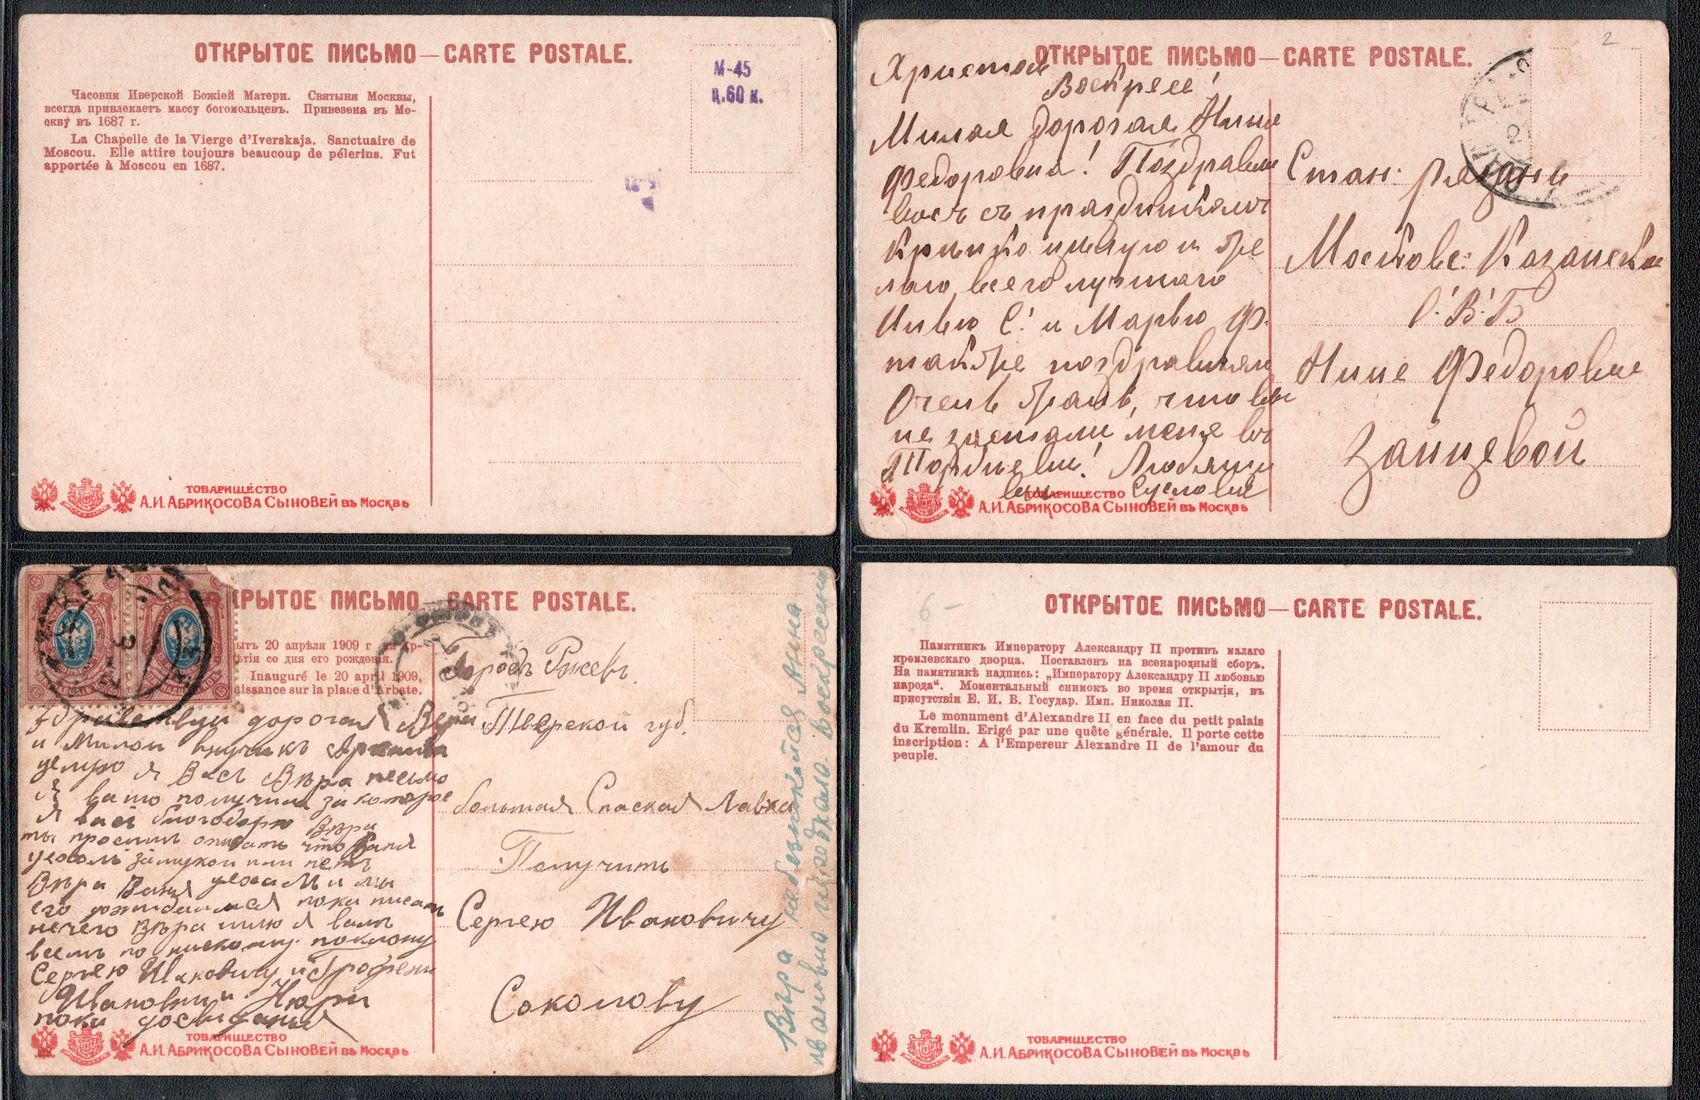 ОТКРЫТОЕ ПИСЬМО—CARTE POSTALE.
М-45
ц.60 к.
Часовня Иверской Божіей Матери. Святыня Москвы,
всегда привлекаетъ массу богомольцевъ. Привезена въ Мо-
скву въ 1687 г.
La Chapelle de la Vierge d'Iverskaja. Sanctuaire de
Moscou. Elle attire toujours beaucoup de pélerins. Fut
apportée à Moscou en 1687.
ТОВАРИЩЕСТВО
А.И. АБРИКОСОВА СЫНОВЕЙ въ МОСКВѢ
ОТКРЫТОЕ ПИСЬМО—CARTE POSTALE.
2
Христосъ
Воскресе!
Милая дорогая Нина
Федоровна! Поздравляю
васъ съ праздникомъ
крѣпко цѣлую и же
лаю всего лучшаго
С. и Марью Ф.
также поздравляю
Очень жаль, что вы
не застали меня въ
Любящая
васъ Суслова
Стан. Рязань
Московс. Казанско
Нине Федоровне
Зайцевой
ТОВАРИЩЕСТВО
А.И. АБРИКОСОВА СЫНОВЕЙ въ МОСКВѢ
КРЫТОЕ ПИСЬМО—CARTE POSTALE.
ытъ 20 апрѣля 1909 г
ѣтія со дня его рожденія.
Inauguré le 20 april 1909,
aissance sur la place d'Arbate.
Здравствуй дорогая Вера
и Милой внучикъ
целую я Васъ Вѣра песмо
Я ваше получила за которое
Я васъ благодарю Вѣра
ты просишь описать что Ваня
уехалъ или нетъ
Вѣра Ваня и мы
его дожидаимся пока писать
нечего Вѣра шлю я вамъ
всемъ по нискому поклону
Сергею Ивановичу и
Ивановны и Нюри
поки досвиданья
Городъ Ржевъ.
Тверской губ.
большая Спаская Лавка
Получить
Сергею Ивановичу
Соколову
Вѣра небезпокойся Анна
ивановна
ТОВАРИЩЕСТВО
А.И. АБРИКОСОВА СЫНОВЕЙ въ МОСКВѢ
6-
ОТКРЫТОЕ ПИСЬМО—CARTE POSTALE.
Памятникъ Императору Александру II противъ малаго
кремлевскаго дворца. Поставленъ на всенародный сборъ.
На памятникѣ надпись: „Императору Александру II любовью
народа“. Моментальный снимокъ во время открытія, въ
присутствіи Е. И. В. Государ. Имп. Николая II.
Le monument d'Alexandre II en face du petit palais
du Kremlin. Erigé par une quête générale. Il porte cette
inscription: A l'Empereur Alexandre II de l'amour du
peuple.
ТОВАРИЩЕСТВО
А.И. АБРИКОСОВА СЫНОВЕЙ въ МОСКВѢ